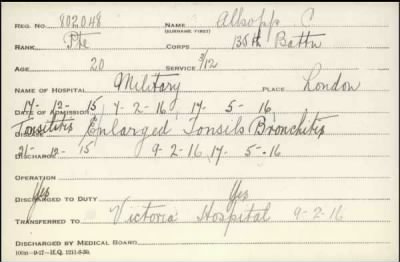 REG. NO. 802048 NAME Allsopp C
(SURNAME FIRST)
RANK Pte CORPS 135th Battn
AGE 20 SERVICE 3/12
NAME OF HOSPITAL Military PLACE London
17- 12- 15 7-2-16 17- 5-16
DATE OF ADMISSION
Tonsilitis Enlarged Tonsils Bronchitis
DISEASE
21- 12- 15 9-2-16 17- 5-16
DISCHARGE
OPERATION
Yes Yes
DISCHARGED TO DUTY
TRANSFERRED TO Victoria Hospital 9-2-16
DISCHARGED BY MEDICAL BOARD
100M-9-17-H.Q. 1211-8-30.